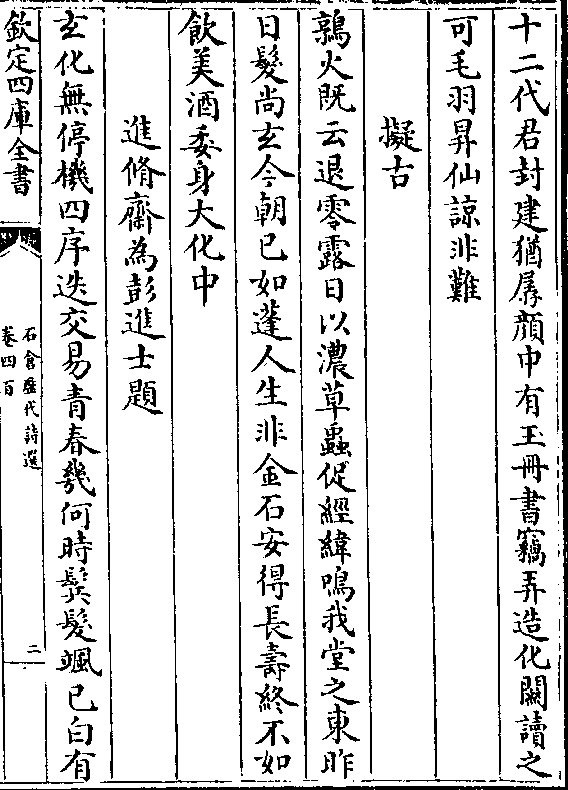 十二代君封建猶孱顔中有玉冊書竊弄造化關讀之
可毛羽昇仙諒非難
擬古
鶉火既云退零露日以濃草蟲促經緯鳴我堂之東昨
日髮尚玄今朝已如蓬人生非金石安得長壽終不如
飲美酒委身大化中
進脩齋為彭進士題
玄化無停機四序迭交易青春幾何時鬂髮颯已白有
欽定四庫全書
石倉歷代詩選
卷四百
二